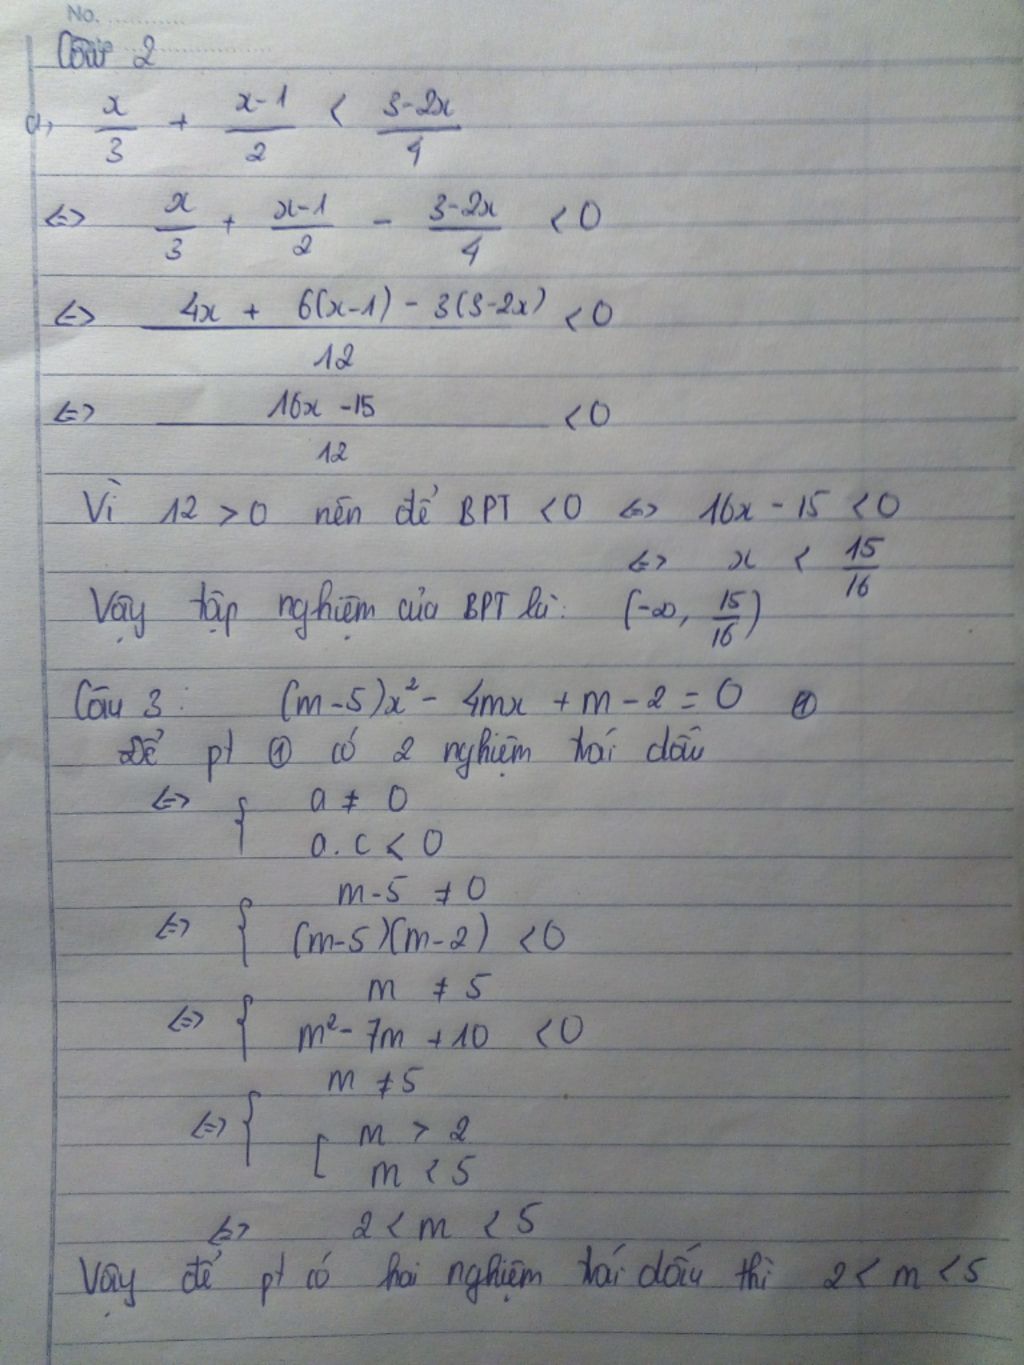 No. ............
Câu 2
a, x/3 + (x-1)/2 < (3-2x)/4
<=> x/3 + (x-1)/2 - (3-2x)/4 < 0
<=> (4x + 6(x-1) - 3(3-2x))/12 < 0
<=> (16x -15)/12 < 0
Vì 12 > 0 nên để BPT < 0 <=> 16x - 15 < 0
<=> x < 15/16
Vậy tập nghiệm của BPT là: (-∞, 15/16)
Câu 3: (m-5)x² - 4mx + m - 2 = 0 ①
Để pt ① có 2 nghiệm trái dấu
<=> { a ≠ 0
a.c < 0
m-5 ≠ 0
<=> { (m-5)(m-2) < 0
m ≠ 5
<=> { m² - 7m + 10 < 0
m ≠ 5
<=> { [ m > 2
m < 5
<=> 2 < m < 5
Vậy để pt có hai nghiệm trái dấu thì 2 < m < 5